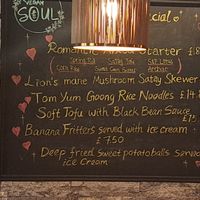 VEGAN
SOUL
Special
Romantic Mixed Starter £8
Spring Roll Satay Tofu Salt
Corn Cake Sweet Corn Soup
Lion's mane Mushroom Satay Skewer
Tom Yum Goong Rice Noodles £14
Soft Tofu with Black Bean Sauce
£15
Banana Fritters served with ice cream
£7.50
Deep fried sweet potatoballs served
ice Cream